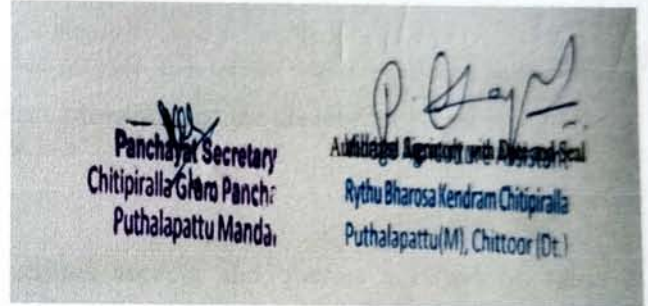 Panchayat Secretary
Chitipiralla Gram Pancha
Puthalapattu Mandal
P.
Rythu Bharosa Kendram Chitipiralla
Puthalapattu(M), Chittoor (Dt.)